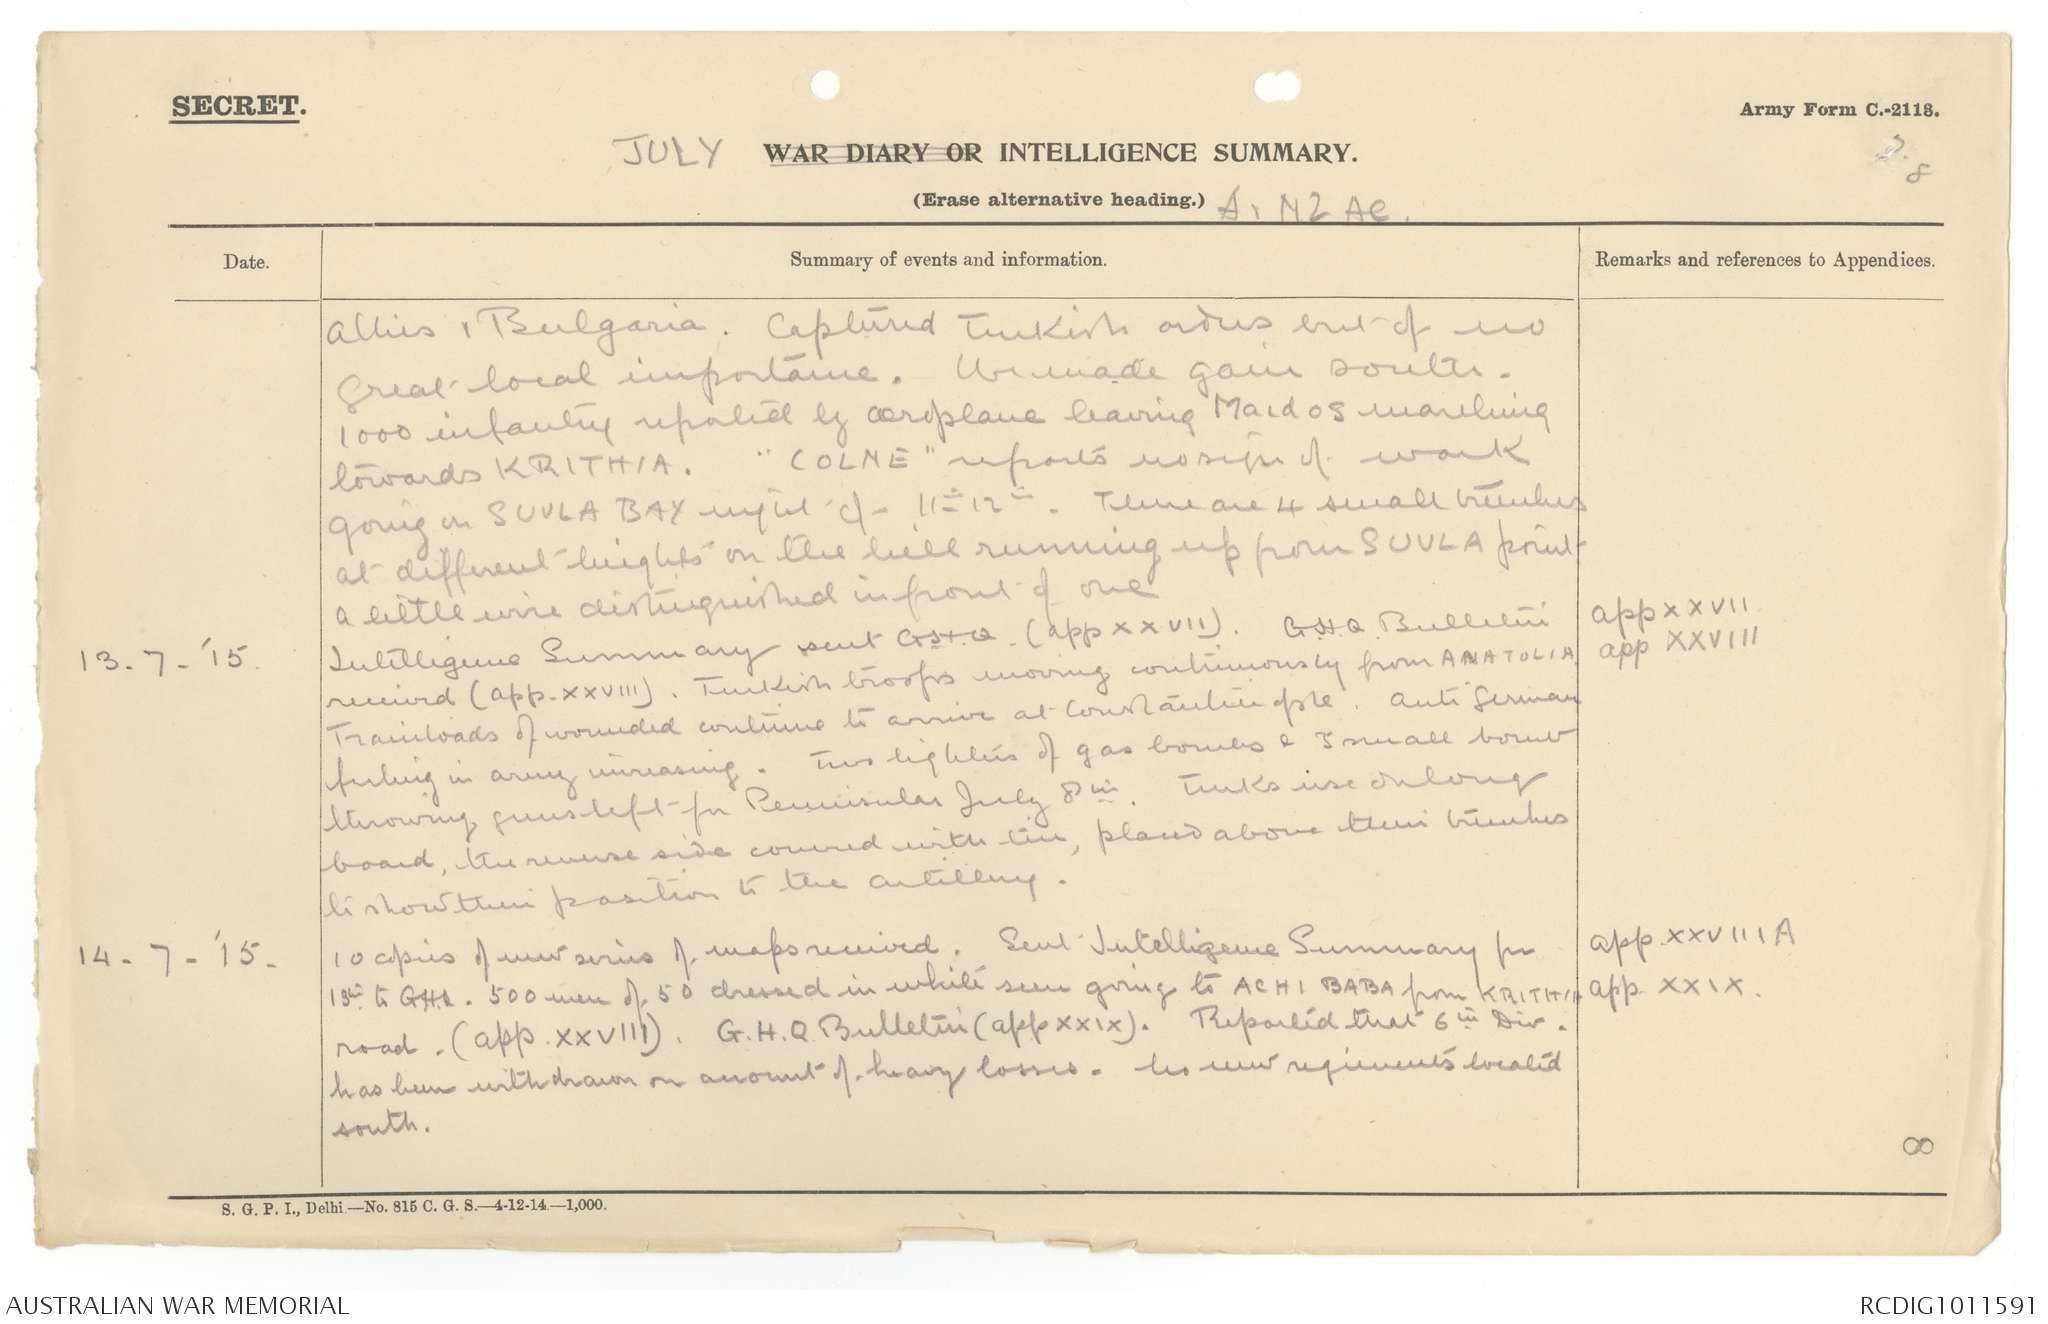 SECRET.
Army Form C.-2118.
JULY WAR DIARY OR INTELLIGENCE SUMMARY.
8
(Erase alternative heading.) A. NZ AC.
Date.
Summary of events and information.
Remarks and references to Appendices.
Allies & Bulgaria. Captured Turkish orders but of no
great local importance. We made gain south.
1000 infantry reported by aeroplane leaving Maidos marching
towards KRITHIA. "COLNE" reports no sign of work
going on SUVLA BAY night of 11th-12th. There are 4 small trenches
at different heights on the hill running up from SUVLA point
a little wire distinguished in front of one
13-7-'15. Intelligence Summary sent GHQ (app XXVII). G.H.Q. Bulletin
app XXVII
received (app. XXVIII). Turkish troops moving continuously from ANATOLIA.
app XXVIII
Trainloads of wounded continue to arrive at Constantinople. Anti German
feeling in army increasing. Two lighters of gas bombs & 3 small bomb
throwing guns left for Peninsular July 8th. Turks use oblong
board, the reverse side covered with tin, placed above their trenches
to show their position to the artillery.
14-7-'15- 10 copies of new series of maps received. Sent Intelligence Summary for
app. XXVIII A
13th to GHQ. 500 men of 50 dressed in white seen going to ACHI BABA from KRITHIA
app. XXIX.
road. (app. XXVIII). G.H.Q Bulletin (app XXIX). Reported that 6th Div.
has been withdrawn on account of heavy losses. No new regiments located
south.
8
S. G. P. I., Delhi.—No. 815 C. G. S.—4-12-14.—1,000.
AUSTRALIAN WAR MEMORIAL
RCDIG1011591